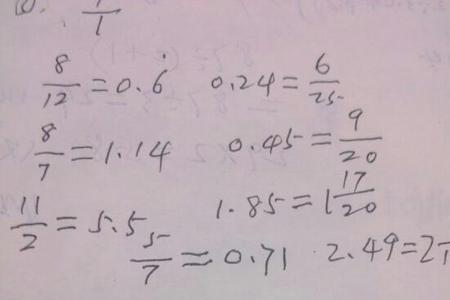 8/12 = 0.6̇   0.24 = 6/25
8/7 = 1.14   0.45 = 9/20
11/2 = 5.5   1.85 = 1 17/20
5/7 ≈ 0.71   2.49 = 2